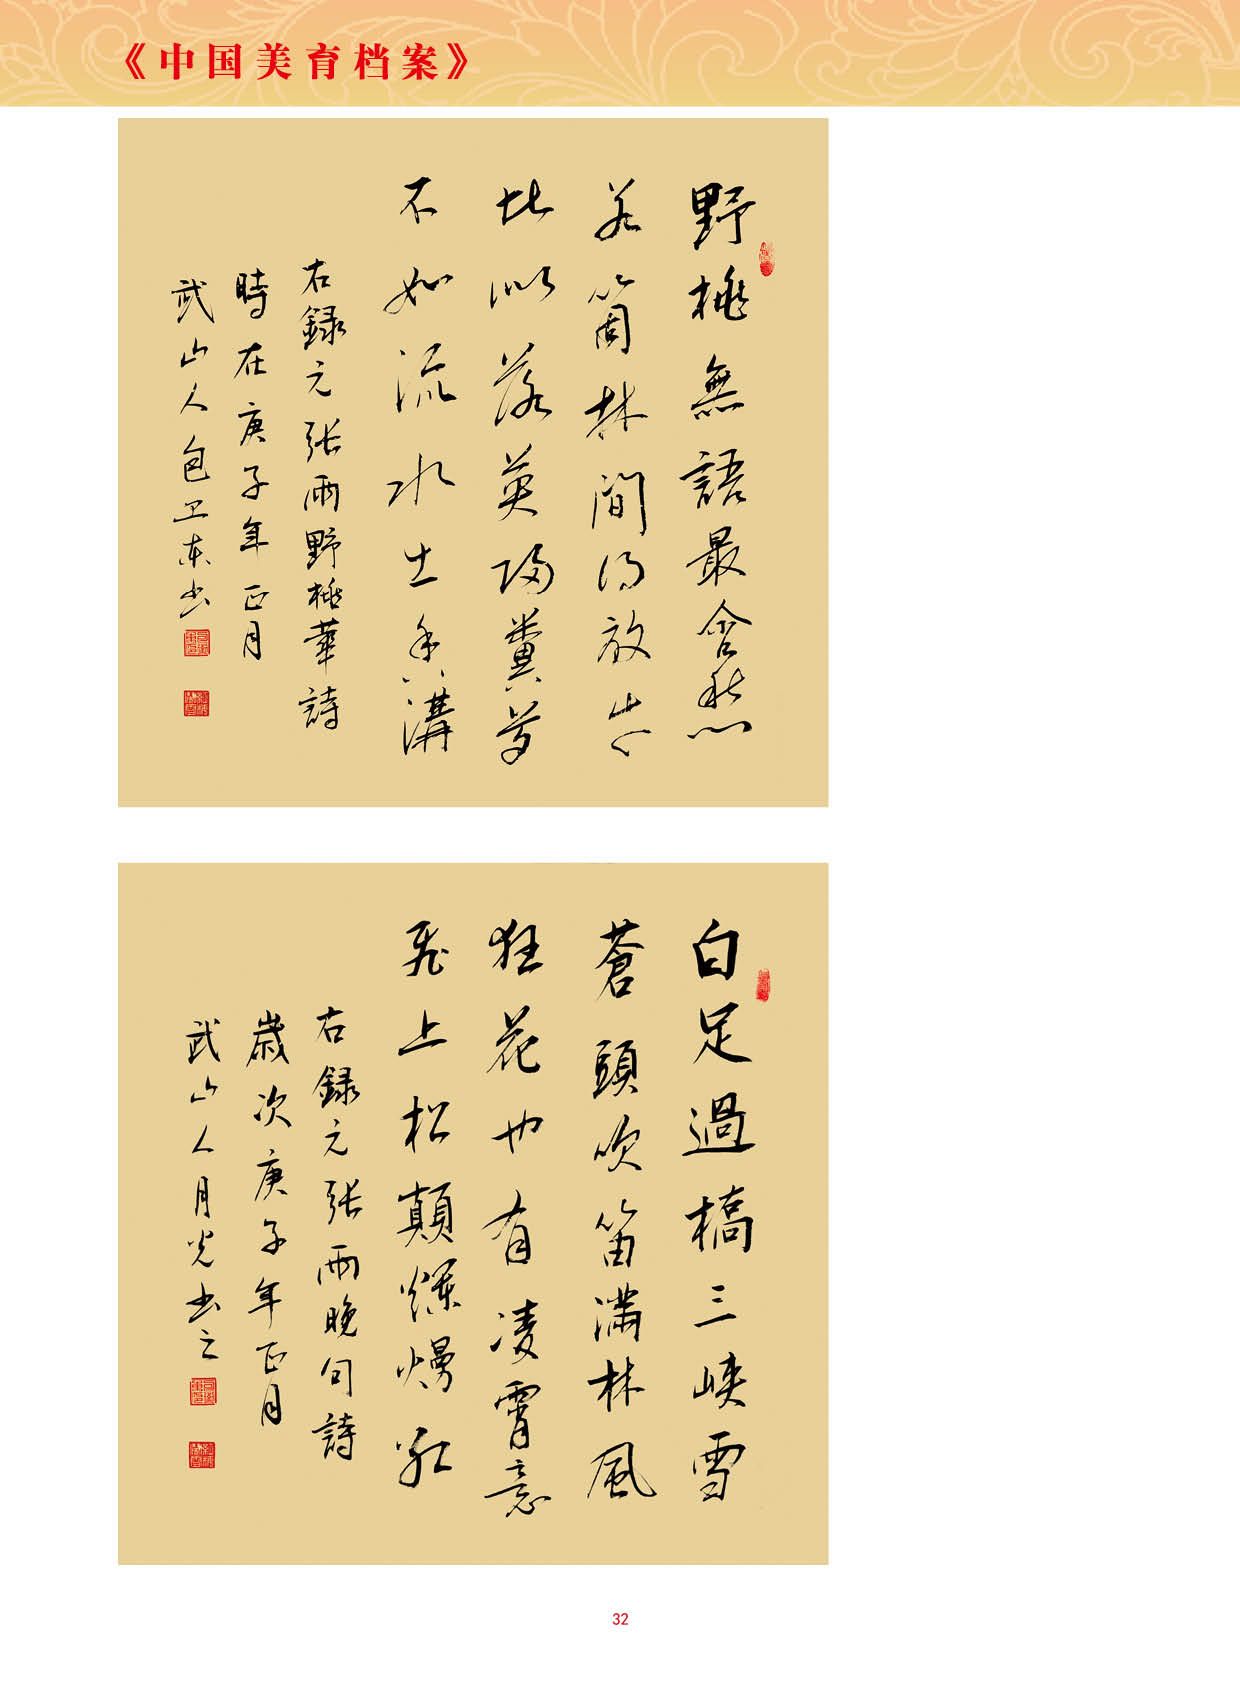 《中国美育档案》
野桃無語最含愁
若箇林間得放
比似落英歸糞
不如流水香溝
右録元张雨野桃華詩
時在庚子年正月
武山人包卫东书
白足過橋三峡雪
蒼頭吹笛滿林風
狂花也有凌霄意
飛上松顛爛熳紅
右録元张雨晚句詩
歲次庚子年正月
武山人月光书之
32